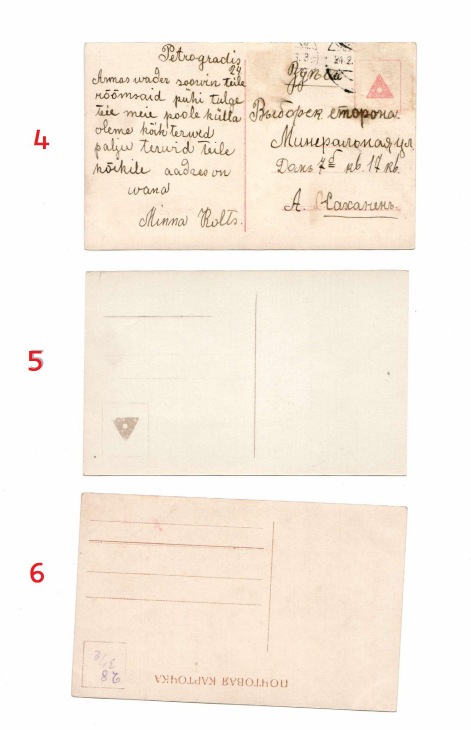 4
Petrogradis
24
Armas wader soovin teile
rõõmsaid pühi tulge
teie meie poole külla
oleme kõik terwed
palju terwid teile
kõikile aadres on
wana
Minna Rolts.
24.2.
Выборск сторона.
Минеральная ул
Домъ 7 кв. 17 кв.
А.
5
6
ПОЧТОВАЯ КАРТОЧКА
28